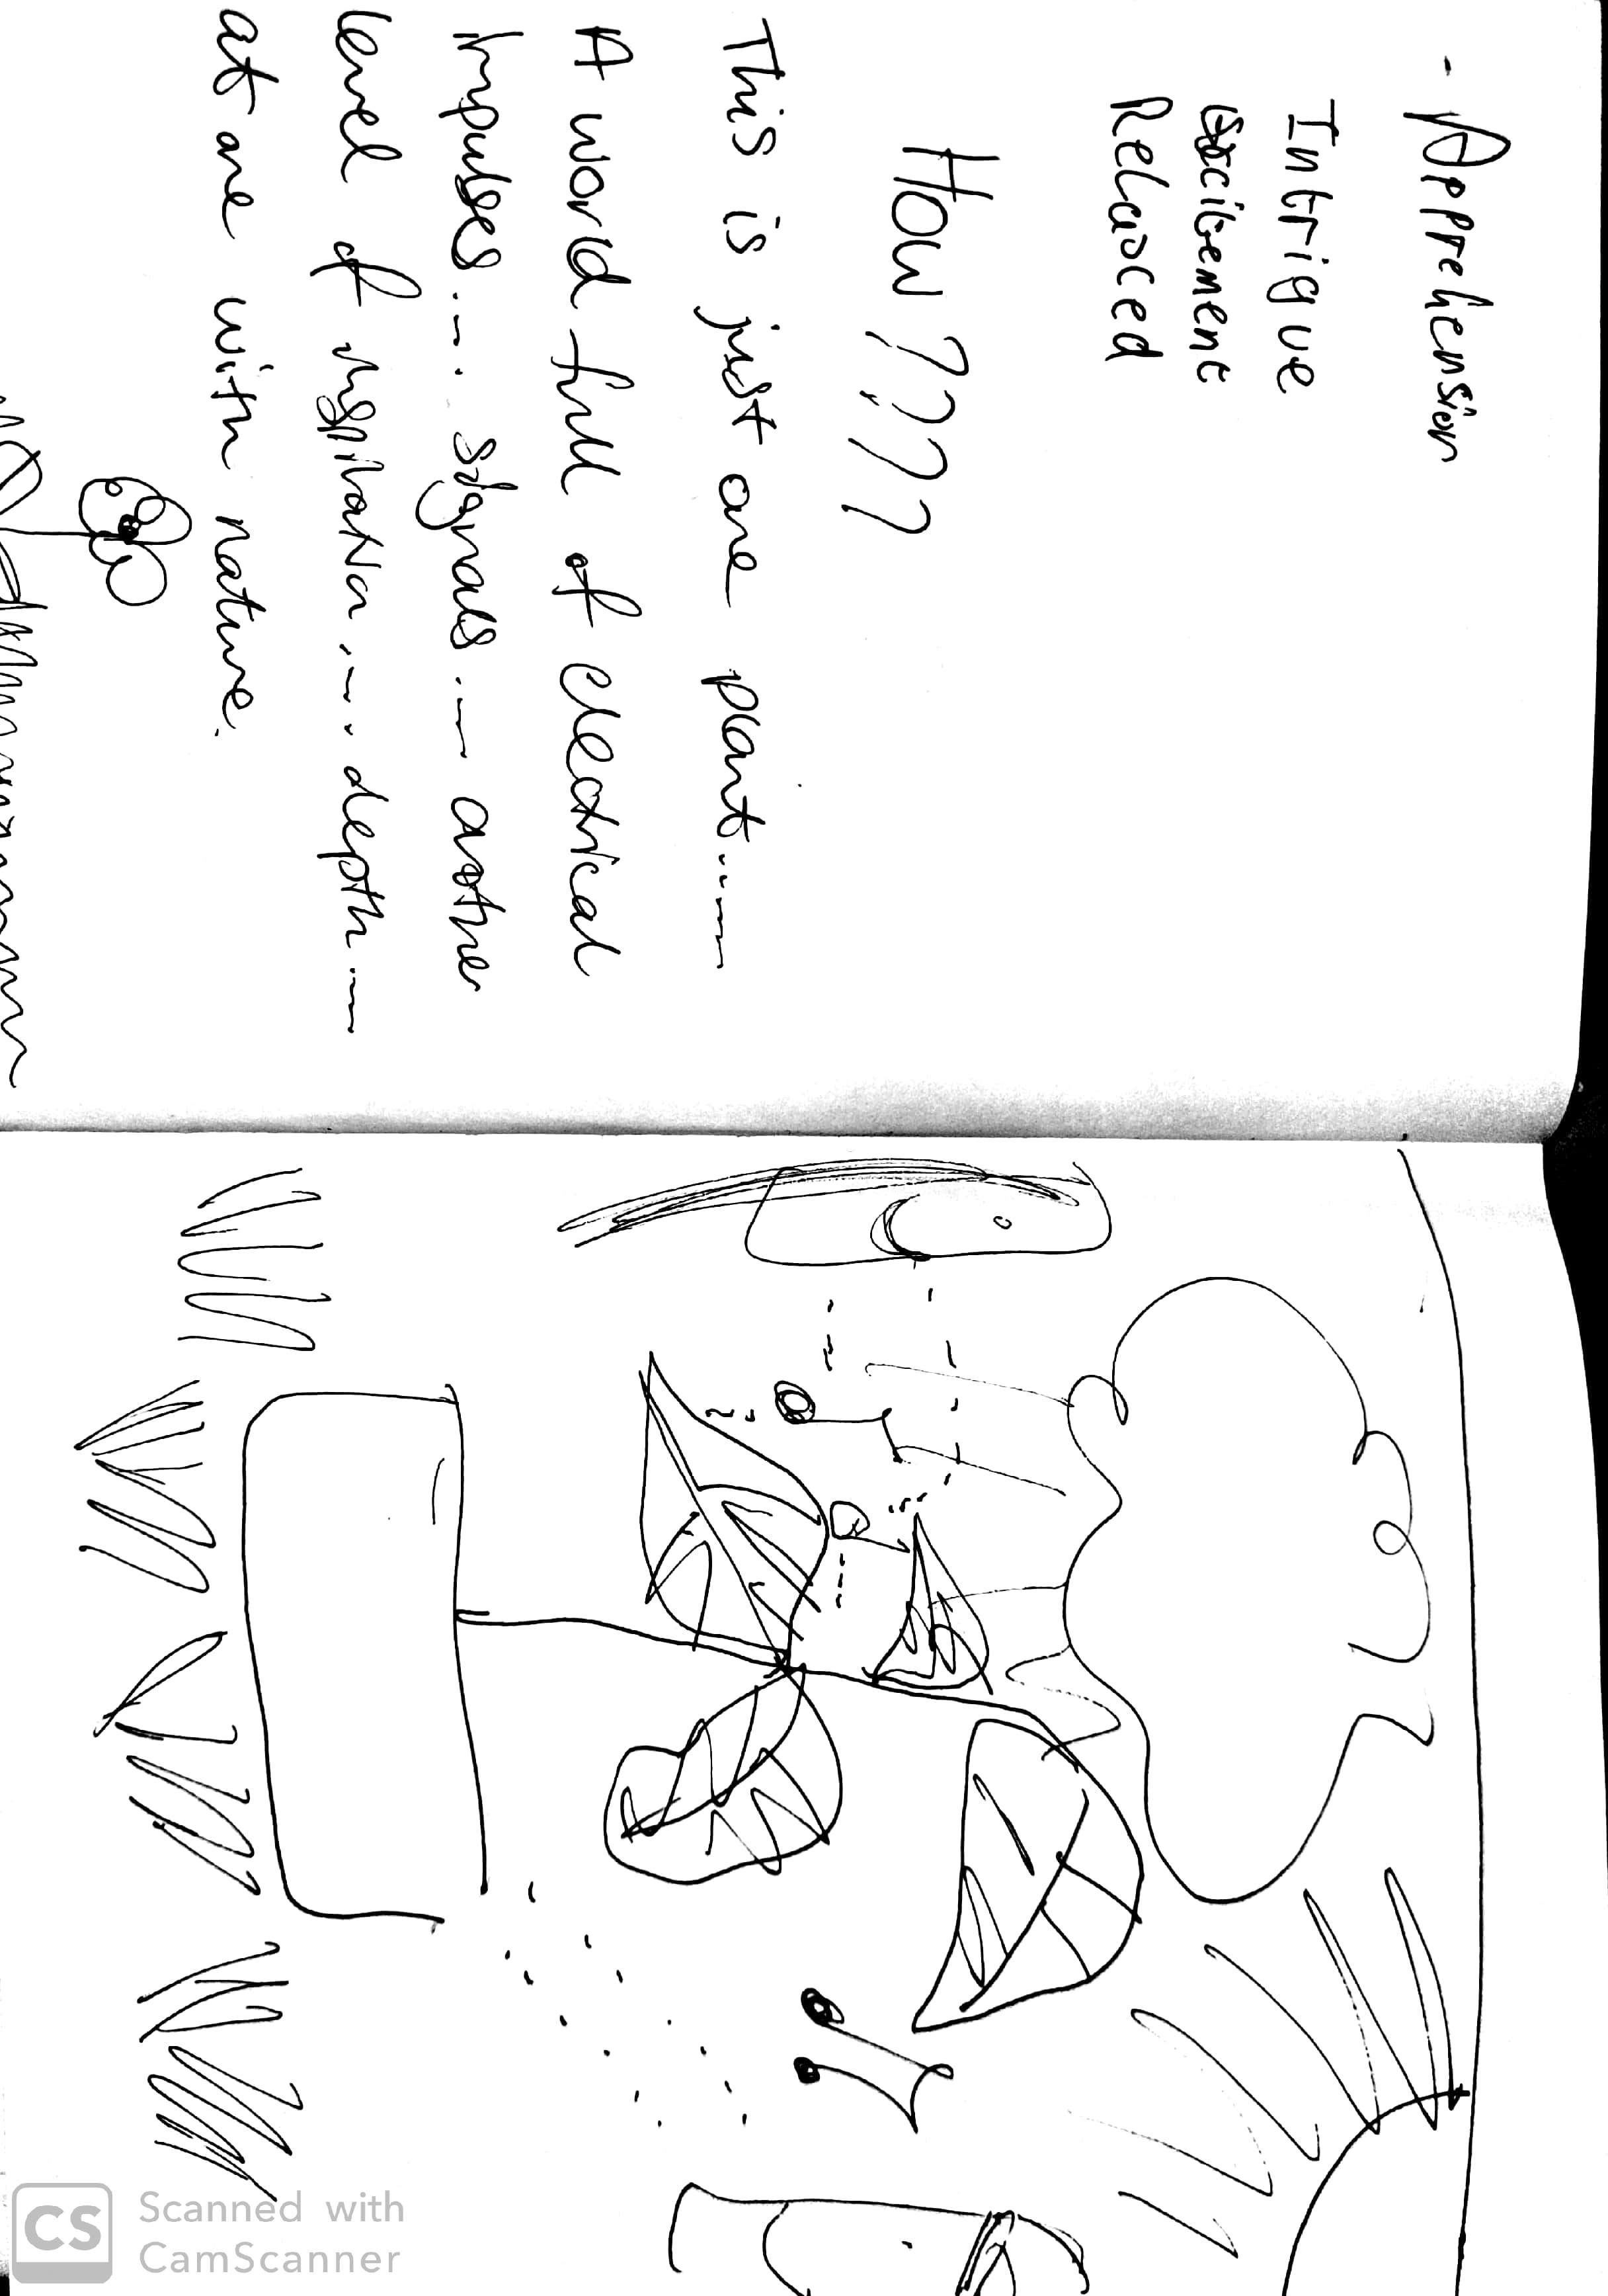 - Apprehension
Intrigue
Excitement
Relaxed
How ????
This is just one plant......
A world full of electrical
impulses.... signals.... another
level of ........ depth....
at one with nature.
CS Scanned with
CamScanner